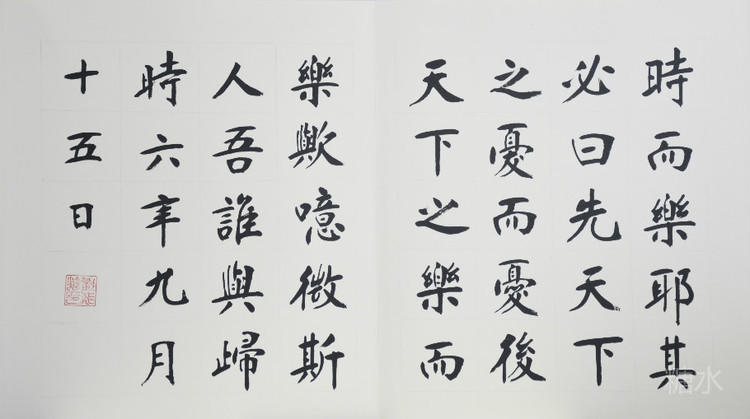 時而樂耶其
必曰先天下
之憂而憂後
天下之樂而
樂歟噫微斯
人吾誰與歸
時六年九月
十五日
糖水